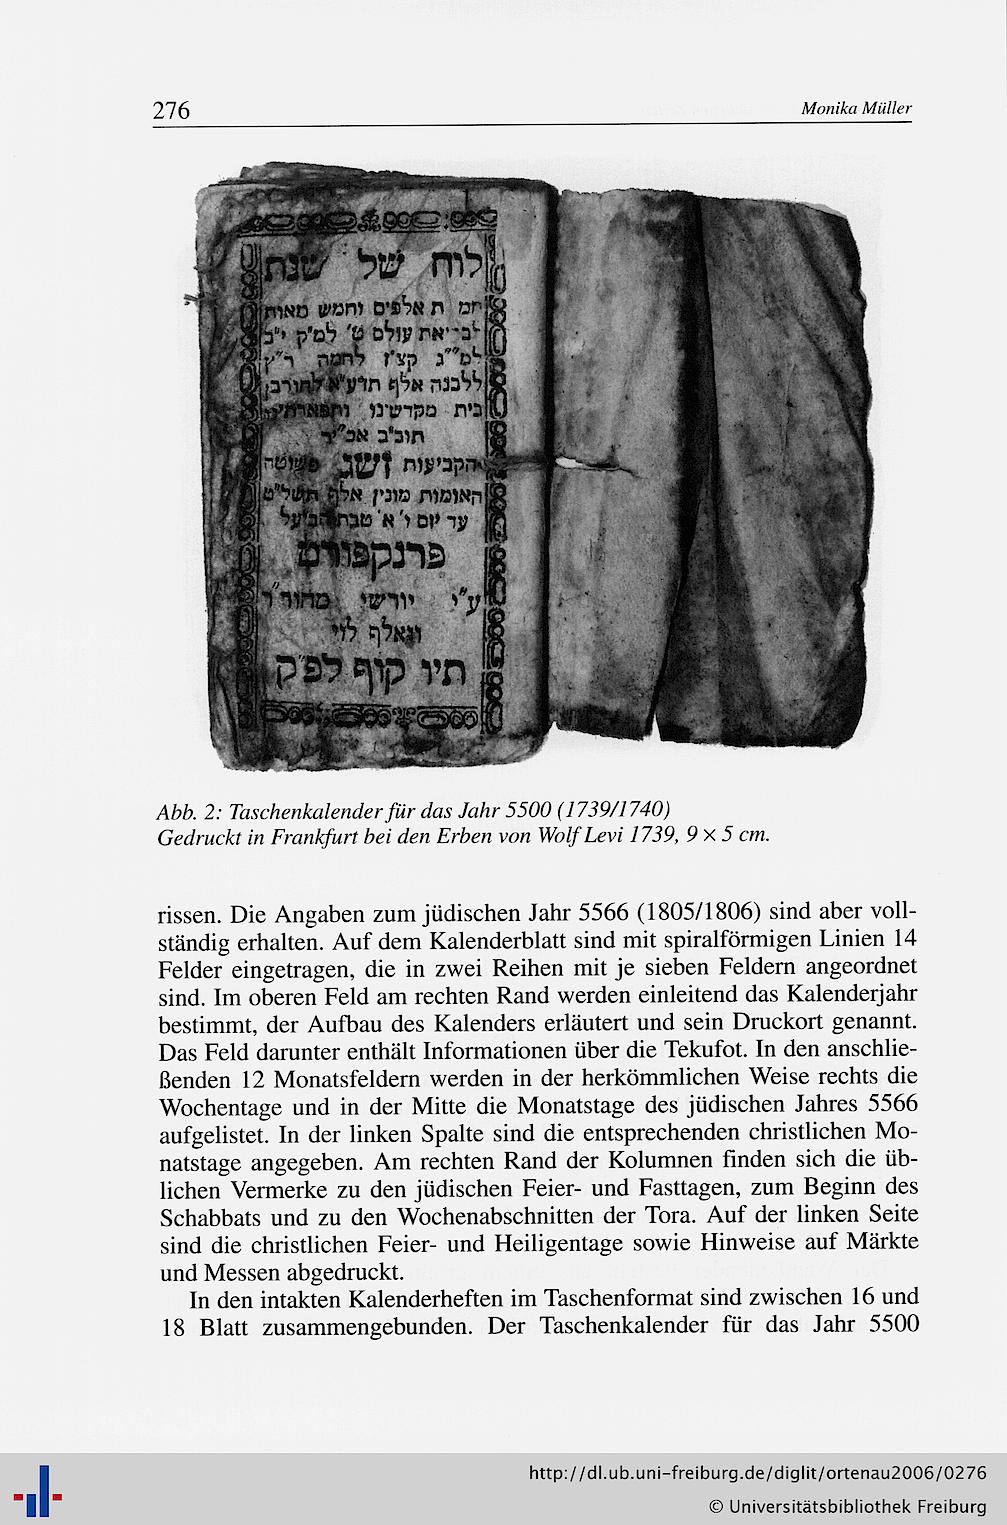 276
Monika Müller
לוח של שנת
ת אלפים וחמש מאות
עולם ט' למ"ק י"ב
לחמה ר"ץ
ללבנה אלף תדע"א
בית מקדשינו
תוב"ב אכי"ר
הקביעות זשג פשוטה
האומות מונין אלף תשל"ט
עד יום ו' א' טבת
פרנקפורט
ע"י יורשי מהור"ר
וואלף לוי
תיו קוף לפ"ק
Abb. 2: Taschenkalender für das Jahr 5500 (1739/1740)
Gedruckt in Frankfurt bei den Erben von Wolf Levi 1739, 9 × 5 cm.
rissen. Die Angaben zum jüdischen Jahr 5566 (1805/1806) sind aber voll-
ständig erhalten. Auf dem Kalenderblatt sind mit spiralförmigen Linien 14
Felder eingetragen, die in zwei Reihen mit je sieben Feldern angeordnet
sind. Im oberen Feld am rechten Rand werden einleitend das Kalenderjahr
bestimmt, der Aufbau des Kalenders erläutert und sein Druckort genannt.
Das Feld darunter enthält Informationen über die Tekufot. In den anschlie-
ßenden 12 Monatsfeldern werden in der herkömmlichen Weise rechts die
Wochentage und in der Mitte die Monatstage des jüdischen Jahres 5566
aufgelistet. In der linken Spalte sind die entsprechenden christlichen Mo-
natstage angegeben. Am rechten Rand der Kolumnen finden sich die üb-
lichen Vermerke zu den jüdischen Feier- und Fasttagen, zum Beginn des
Schabbats und zu den Wochenabschnitten der Tora. Auf der linken Seite
sind die christlichen Feier- und Heiligentage sowie Hinweise auf Märkte
und Messen abgedruckt.
In den intakten Kalenderheften im Taschenformat sind zwischen 16 und
18 Blatt zusammengebunden. Der Taschenkalender für das Jahr 5500
http://dl.ub.uni-freiburg.de/diglit/ortenau2006/0276
© Universitätsbibliothek Freiburg